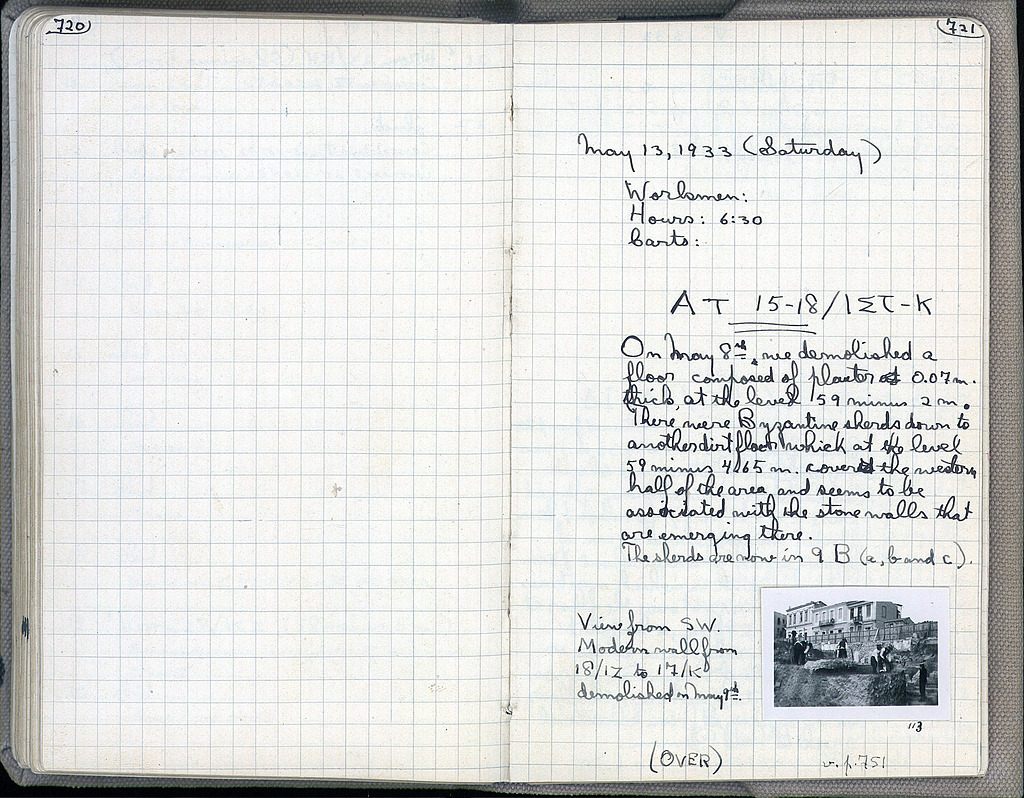 720
721
May 13, 1933 (Saturday)
Worksmen:
Hours: 6:30
Carts:
AT 15-18/ΙΣΤ-Κ
On May 8th, we demolished a
floor composed of plaster 0.07 m.
thick, at the level 59 minus 2 m.
There were Byzantine sherds down to
another dirt floor which at the level
59 minus 4.65 m. covered the western
half of the area and seems to be
associated with the stone walls that
are emerging there.
The sherds are now in 9 B (a, b and c).
View from SW.
Modern wall from
18/ΙΖ to 17/Κ
demolished on May 9th.
113
(OVER)
v. p. 751